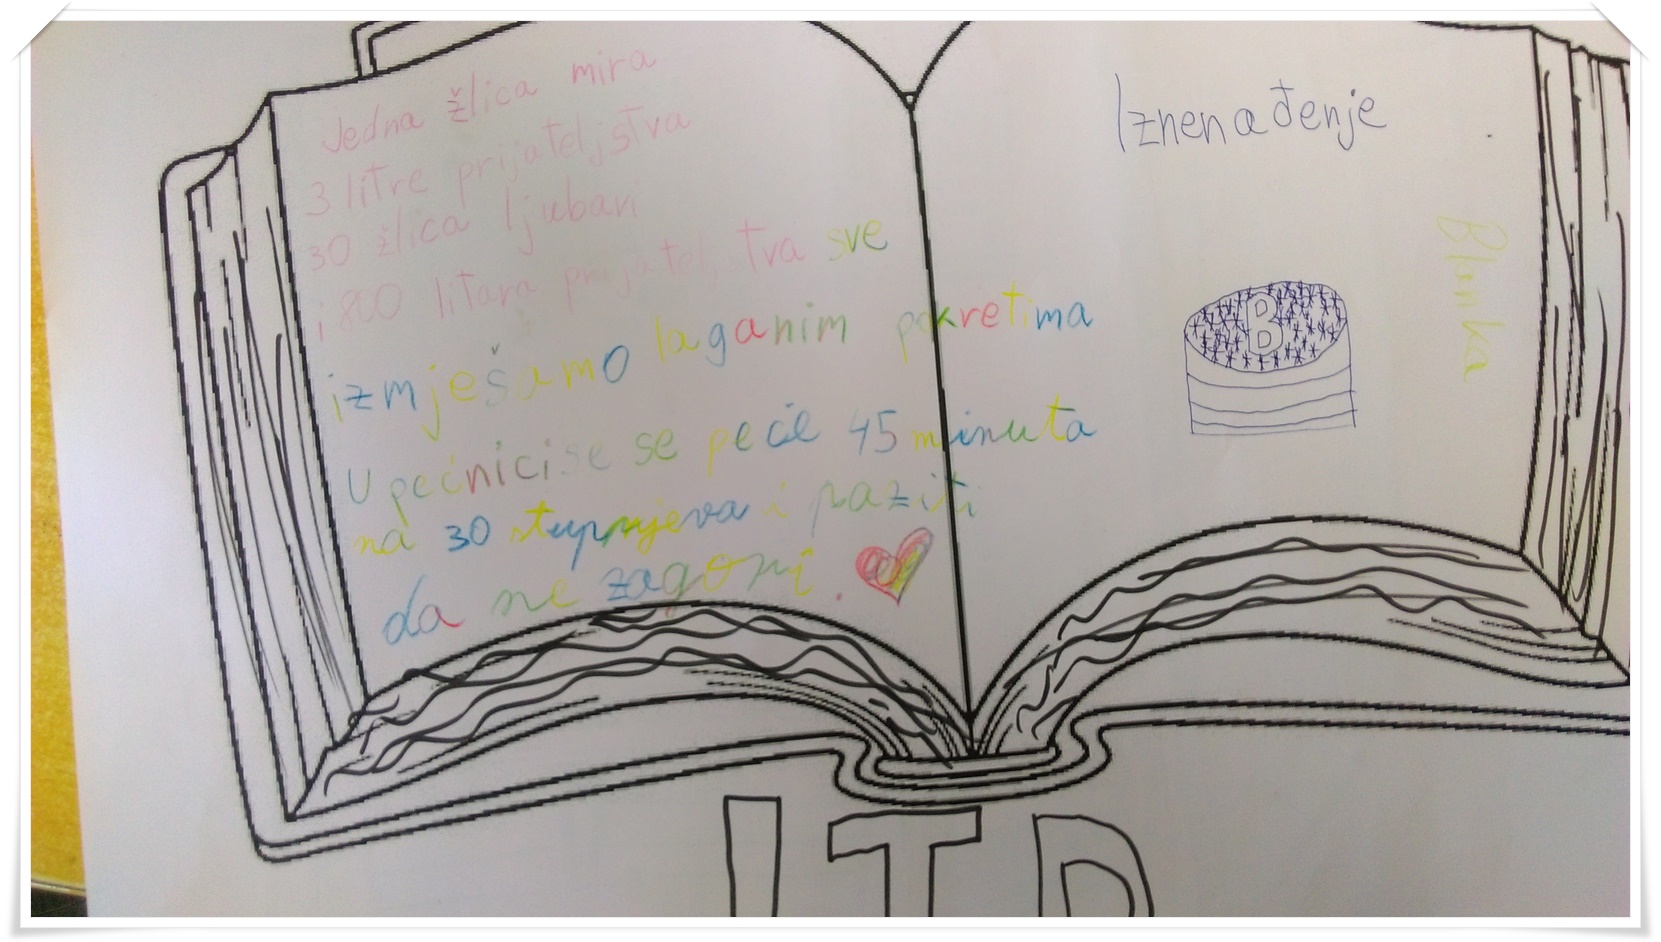 Jedna žlica mira
3 litre prijateljstva
30 žlica ljubavi
i 800 litara prijateljstva sve
izmješamo laganim pokretima
U pećnici se se peće 45 minuta
na 30 stupnjeva i paziti
da ne zagori.
Iznenađenje
B
Blanka